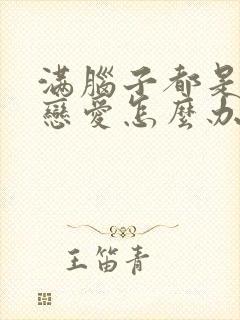 滿腦子都是
戀愛怎麼办
王笛青